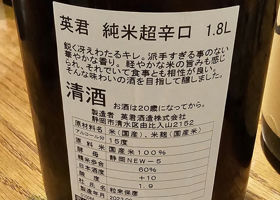 英君 純米超辛口 1.8L
鋭く冴えわたるキレ。派手すぎる事のない
華やかな香り。軽やかな米の旨みも感じ
られ、それでいて食事とも相性が良い。
そんな味わいの酒を目指して醸しました。
清酒 お酒は20歳になってから。
製造者 英君酒造株式会社
静岡市清水区由比入山2152
原材料名 米(国産)、米麹(国産米)
アルコール分 15度
原料米 国産米100%
酵母 静岡NEW-5
精米歩合 60%
日本酒度 +10
酸度 1.9
種別 粒来保産
製造年月 2023.09